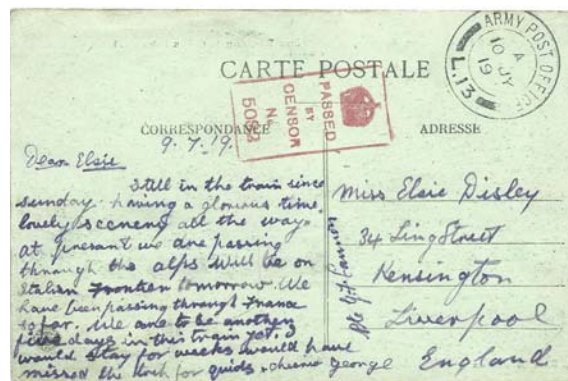 CARTE POSTALE
ARMY POST OFFICE
A
10 JY
19
L.13
PASSED
BY
CENSOR
No.
CORRESPONDANCE
ADRESSE
9.7.19.
Dear Elsie
Still in the train since
sunday. having a glorious time.
lovely scenery all the way.
at present we are passing
through the alps will be on
Italian Frontier tomorrow. We
have been passing through France
so far. We are to be another
five days in this train yet. I
would stay for weeks would have
missed the for quids. cheerio George
Miss Elsie Disley
34 Ling Street
Kensington
Liverpool
England
Pte